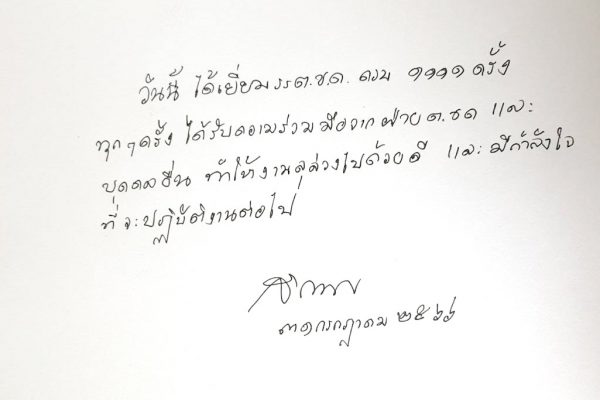 วันนี้ ได้เยี่ยม รร ต.ช.ด. ครบ ๑๑๑๑ ครั้ง
ทุก ๆ ครั้ง ได้รับความร่วมมือจาก ฝ่าย ต.ชด และ
บุคคลอื่น ทำให้งานลุล่วงไปด้วยดี และ มีกำลังใจ
ที่จะปฏิบัติงานต่อไป
๓๑ กรกฎาคม ๒๕๖๖